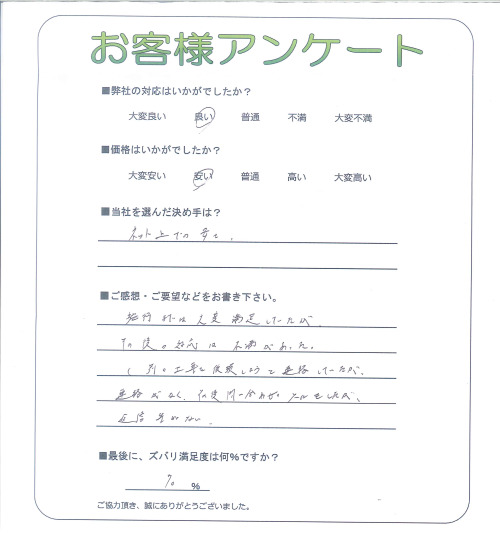 お客様アンケート
■弊社の対応はいかがでしたか？
大変良い 良い 普通 不満 大変不満
■価格はいかがでしたか？
大変安い 安い 普通 高い 大変高い
■当社を選んだ決め手は？
ネット上での安さ。
■ご感想・ご要望などをお書き下さい。
は大変満足していたが、
その後の対応は不満があった。
引の工事を依頼しようと連絡していたが、
連絡がなく、その後問い合わせメールをしたが、
返信きがない。
■最後に、ズバリ満足度は何％ですか？
70 ％
ご協力頂き、誠にありがとうございました。